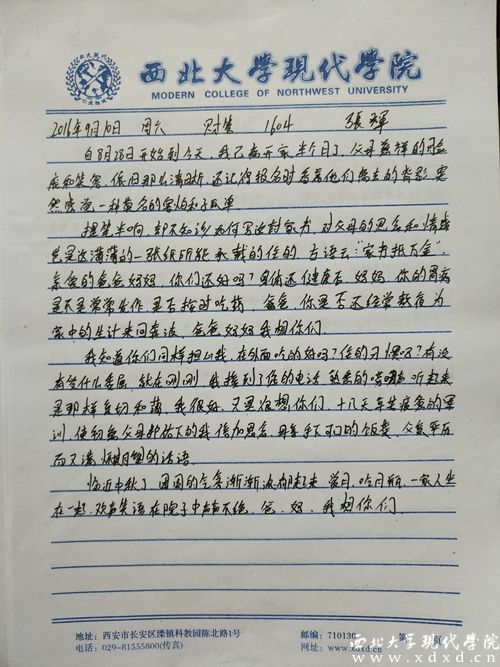 西北大學現代學院
MODERN COLLEGE OF NORTHWEST UNIVERSITY
2016年9月10日 周六 财管 1604 張輝
自8月28日开始到今天,我已离开家半个月了,父母慈祥的面
庞和笑容,依旧那么清晰,还记得报名时看着他们离去的背影,突
然感觉一种莫名的害怕和孤单
提笔半响,却不知该如何写这封家书,对父母的思念和情感
岂是这薄薄的一张纸所能承载的住的 古语云:"家书抵万金",
亲爱的爸爸妈妈,你们还好吗?身体还健康否,妈妈,你的胃病
是不是常常发作,是否按时吃药,爸爸,你是否还经常熬夜为
家中的生计来回奔波,爸爸妈妈我想你们。
我知道你们同样担心我,在外面吃的好吗?住的习惯吗?有没
有受什么委屈,就在刚刚,我接到了你的电话 熟悉的 听起来
是那样亲切和蔼,我很好,只是很想你们,十几天辛苦疲惫的军
训,使初离父母 下的我倍加思念,母亲 的饭菜,父亲平历
而又满 期望的话语。
临近中秋了,团圆的气氛渐渐浓郁起来 赏月,吟月饼,一家人坐
在一起,欢声笑语在院子中声声不绝,爸,妈,我想你们
地址:西安市长安区滦镇科教园陈北路1号
电话:029-81555800(传真)
邮编:710130
第 页
西北大学现代学院
www.xdxd.cn